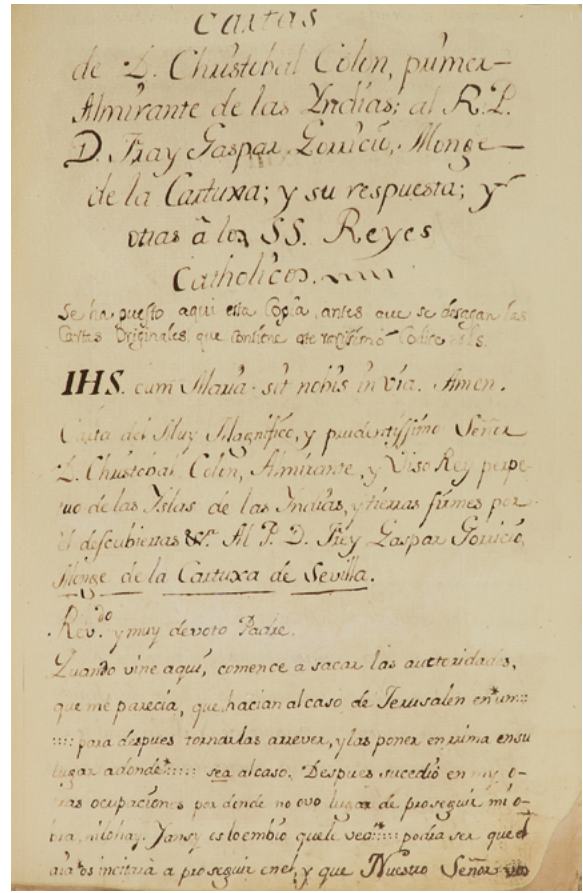 Cartas
de D. Christobal Colon, primer
Almirante de las Yndias; al R. P.
D. Fray Gaspar Gorricio, Monge
de la Cartuxa; y su respuesta; y
otras à los SS. Reyes
Catholicos.
Se ha puesto aqui esta Copia, antes que se desagan las
Cartas Originales, que contiene este rarissimo Codice
IHS. cum Maria sit nobis in via. Amen.
Carta del Muy Magnifico, y prudentissimo Señor
D. Christobal Colon, Almirante, y Viso Rey perpe-
tuo de las Islas de las Yndias, y tierras firmes por
el descubiertas &. Al P. D. Frey Gaspar Gorricio,
Monge de la Cartuxa de Sevilla.
Rev.do y muy devoto Padre.
Quando vine aquí, comence a sacar las auctoridades,
que me parecia, que hacian al caso de Jerusalen
para despues tornarlas arrever, y las poner en rima en su
lugar adonde sea al caso. Despues sucedió en my o-
tras ocupaciones por donde no ovo lugar de proseguir mi o-
bra, ni lo hay. Y ansy es lo embio que le podia ser que el
os incitiria à proseguir en el, y que Nuestro Señor